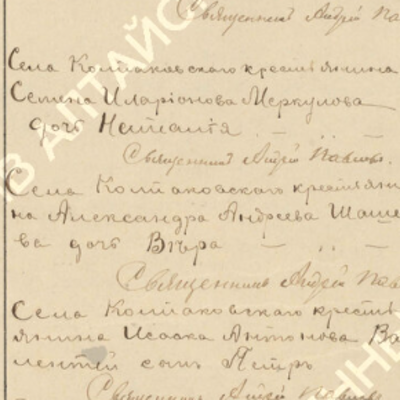 Священникъ Андрей Па
Села Колмаковскаго крестьянина
Семена Иларіонова Меркулова
дочь Наталія
Священникъ Андрей Павловъ.
Села Колмаковскаго крестьяни
на Александра Андреева Шаше
ва дочь Вѣра
Священникъ Андрей Пав
Села Колмаковскаго кресть
янина Исаака Антонова Ва
лентей сынъ Петръ
Священникъ Андрей Павловъ